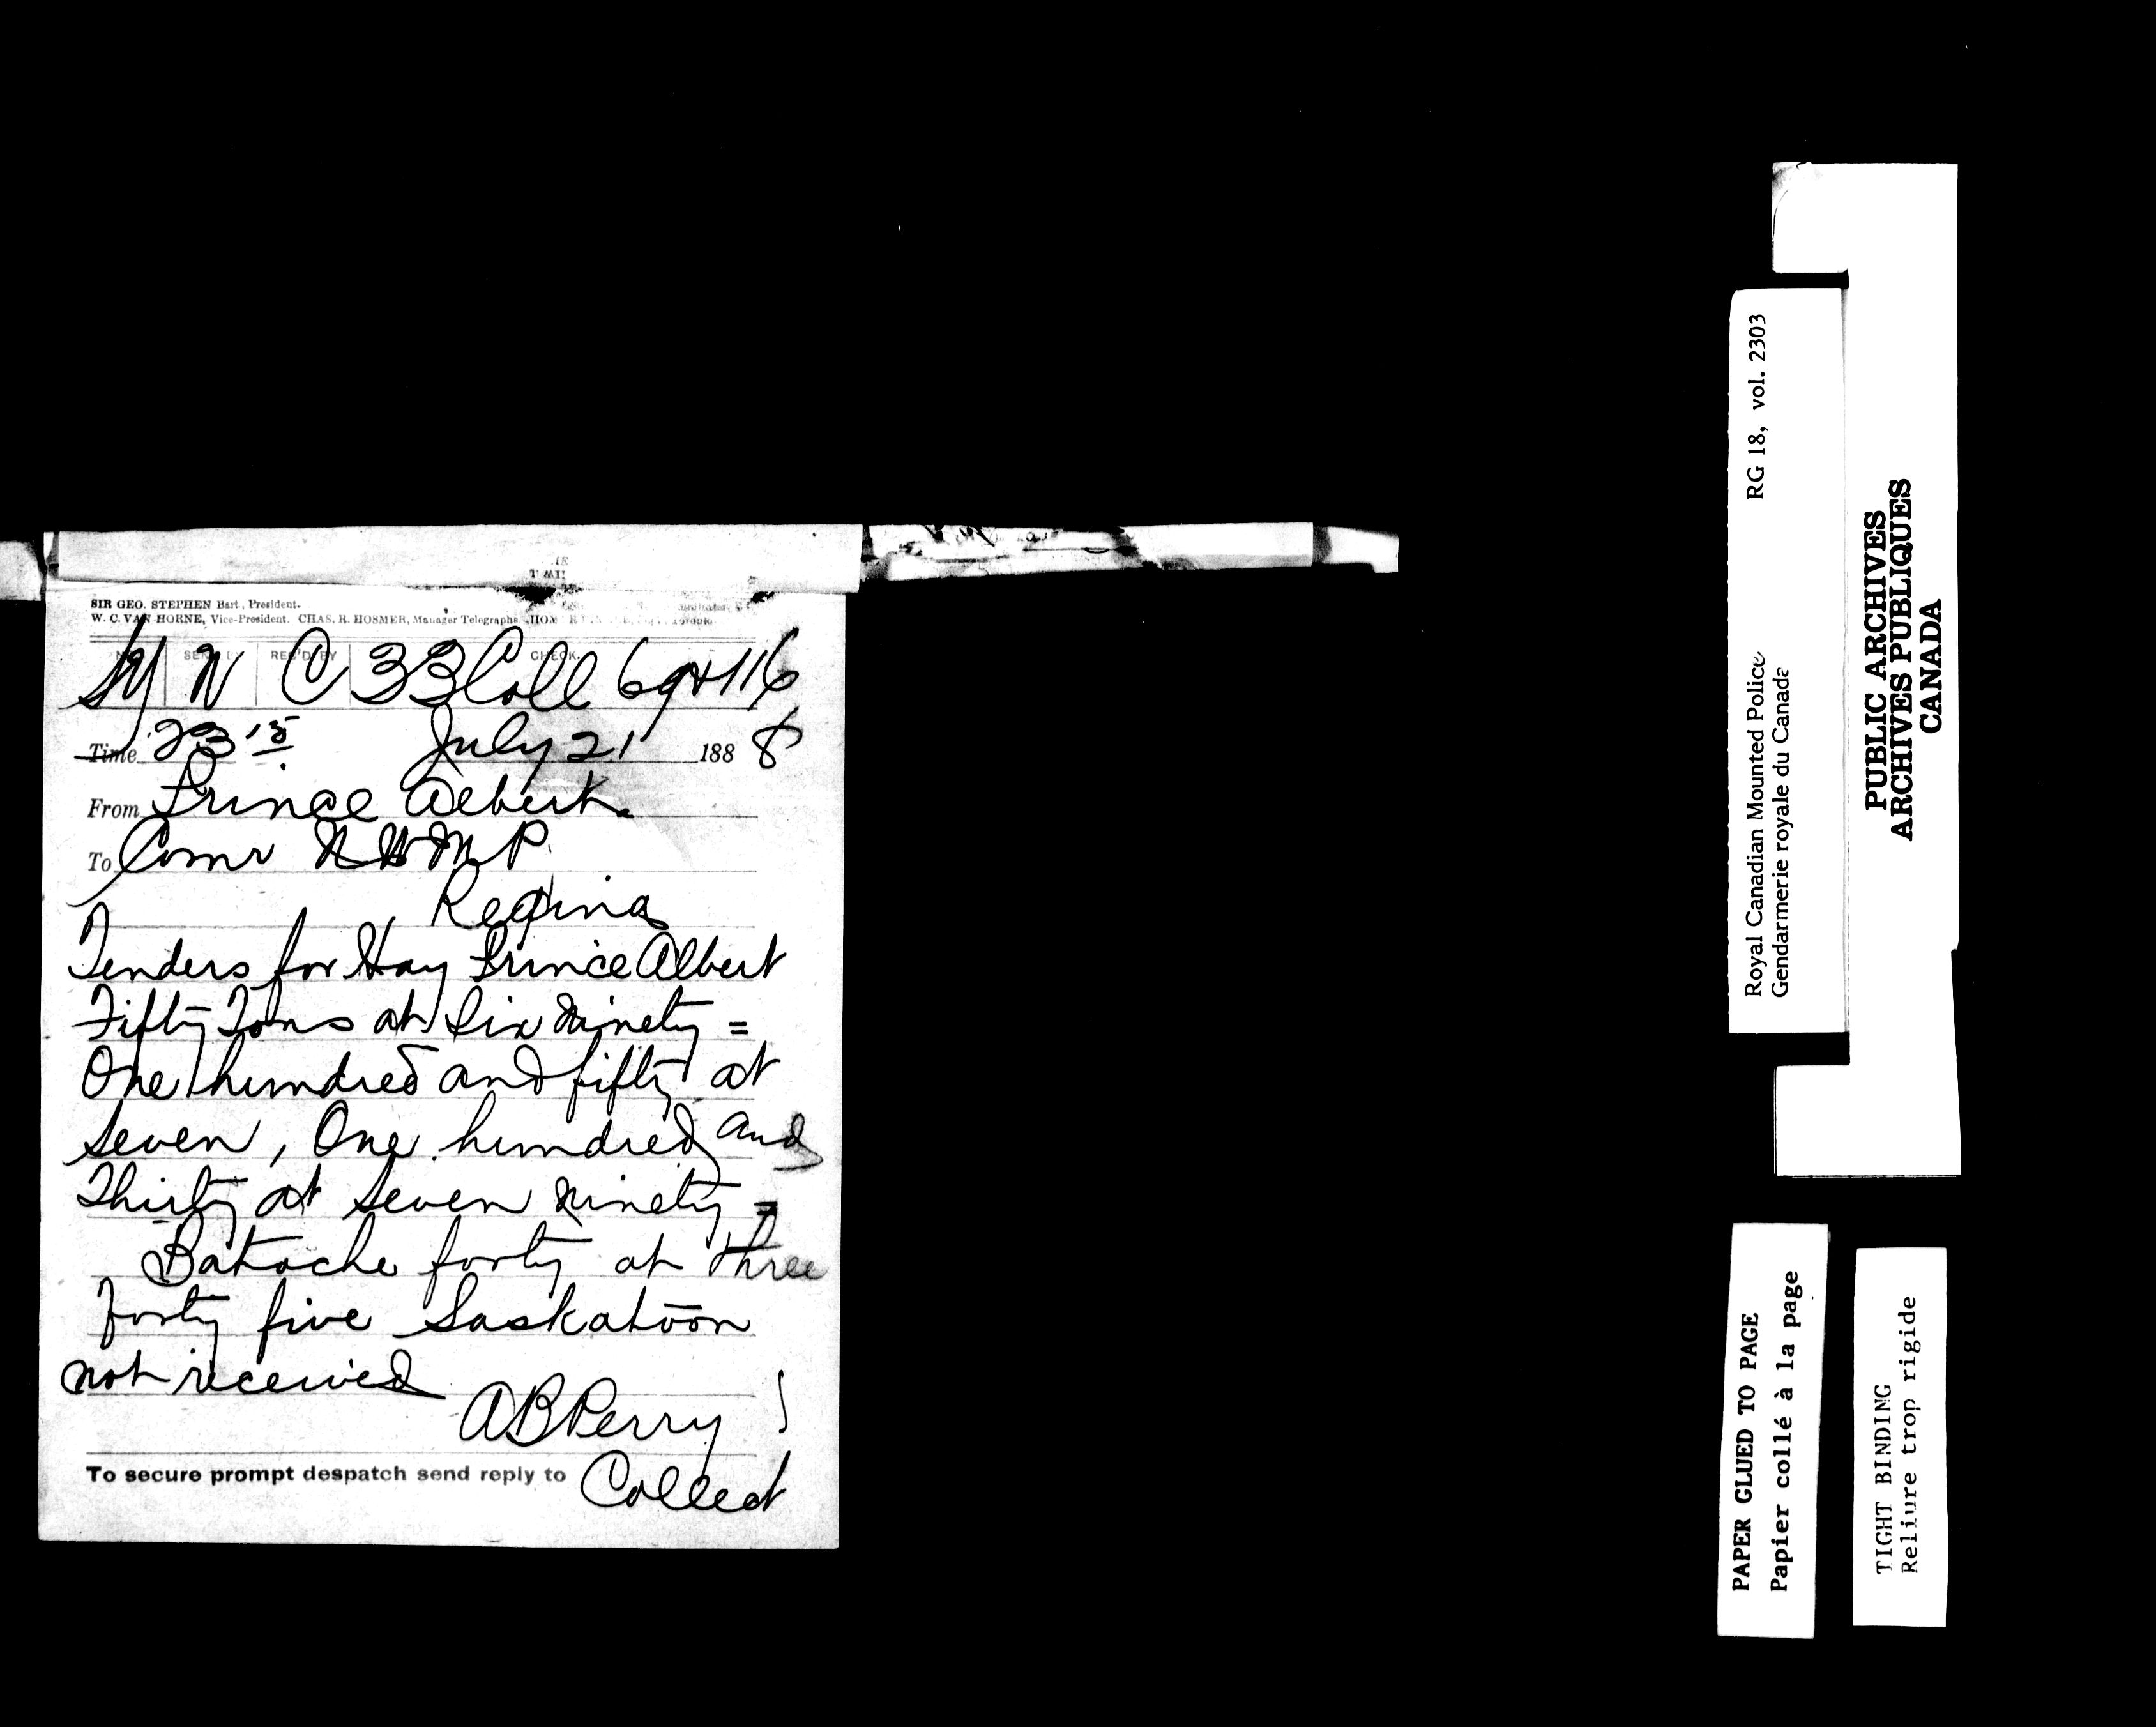 SIR GEO. STEPHEN Bart., President.
W. C. VAN HORNE, Vice-President. CHAS. R. HOSMER, Manager Telegraphs
REC'D BY CHECK.
N C 33 Coll
Time 23 15 July 21 1888
From Prince Albert
To Comr N W M P.
Regina
Tenders for Hay Prince Albert
Fifty Tons at Six Ninety =
One hundred and fifty at
Seven, One hundred and
Thirty at Seven Ninety =
Batoche forty at three
forty five Saskatoon
not received
A B Perry
To secure prompt despatch send reply to Collect
Royal Canadian Mounted Police RG 18, vol. 2303
Gendarmerie royale du Canada
PUBLIC ARCHIVES
ARCHIVES PUBLIQUES
CANADA
PAPER GLUED TO PAGE
Papier collé à la page
TIGHT BINDING
Reliure trop rigide